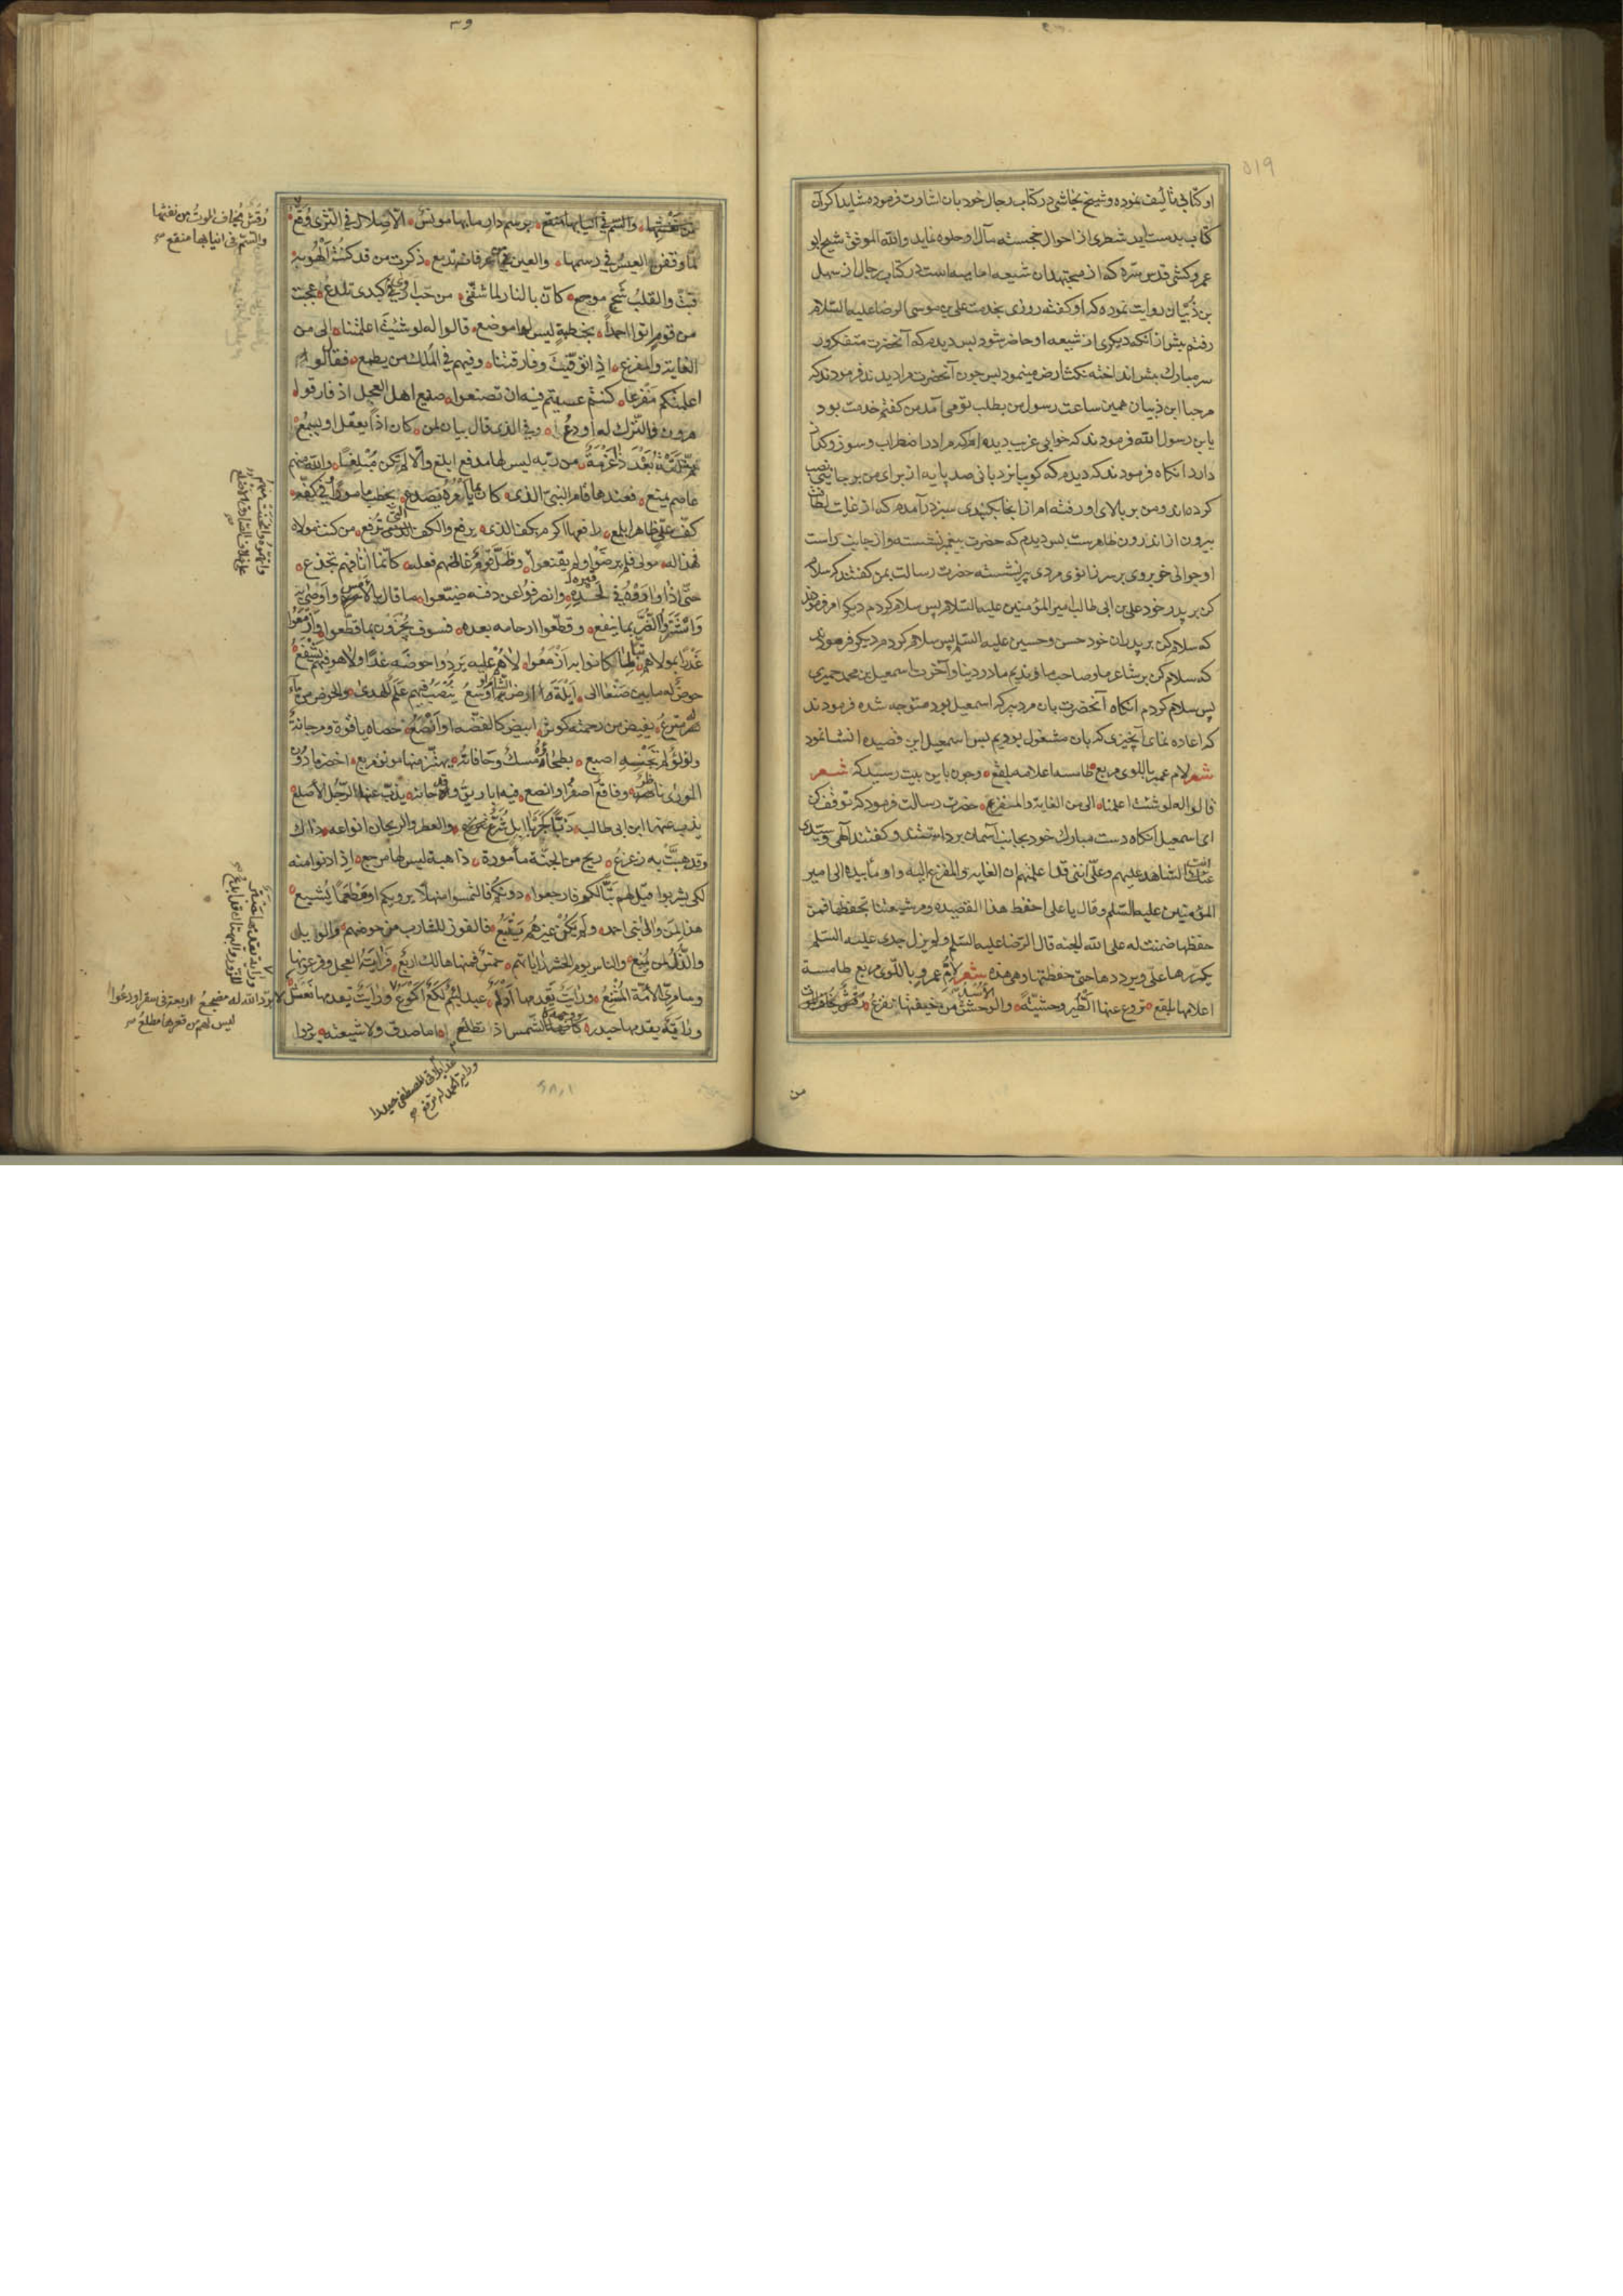 ۵۱۹
او کتابی تألیف نموده و شیخ نجاشی در کتاب رجال خود بان اشارت فرموده شاید اکر آن
کتاب بدست اید شطری از احوال خجسته مآل او جلوه نماید والله الموفق شیخ ابو
عمرو کشی قدس سره که از مجتهدان شیعه امامیه است در کتاب رجال از سهل
بن ذبیان روایت نموده که او کفته روزی بخدمت علی بن موسی الرضا علیه السلام
رفتم پیش از آنکه دیکری از شیعه او حاضر شود پس دیدم که آنحضرت متفکرور
سر مبارک پیش انداخته نکث ارض مینمود پس چون آنحضرت مرا دیدند فرمودند که
مرحبا ابن ذبیان همین ساعت رسول من بطلب تو می آمد من کفتم خدمت بود
یابن رسول الله فرمودند که خوابی غریب دیده ام که مرا در اضطراب و سوز و کداز
دارد انکاه فرمودند که دیدم که کویا نردبانی صد پایه از برای من بر جایی نصب
کرده اند و من بر بالای او رفته ام از انجا بکنبدی سبز در آمدم که از غایت لطافت
بیرون از اندرون ظاهرست پس دیدم که حضرت پیغمبر نشسته و از جانب راست
او جوانی خوبروی بر سر زانوی مردی پیر نشسته حضرت رسالت بمن کفتند که سلام
کن بر پدر خود علی بن ابی طالب امیر المؤمنین علیه السلام پس سلام کردم دیکر امر فرمودند
که سلام کن بر پدران خود حسن و حسین علیه السلم پس سلام کردم دیکر فرمودند
که سلام کن بر شاعر ما و صاحب ما و ندیم ما در دنیا و آخرت اسمعیل بن محمد حمیری
پس سلام کردم انکاه آنحضرت بان مرد پیر که اسمعیل بود متوجه شده فرمودند
که اعاده نمای آنچیزی که بان مشغول بودیم پس اسمعیل این قصیده انشا نمود
شعر لام عمرو باللوی مربع طامسه اعلامه بلقع وچون باین بیت رسید که شعر
قالوا له لو شئت اعلمتنا الی من الغایه والمفزع حضرت رسالت فرمود که توقف کن
ای اسمعیل انکاه دست مبارک خود بجانب آسمان برداشتند و کفتند الهی وسیدی
انت الشاهد علیهم وعلی اننی قد اعلمتهم ان الغایة والمفزع الیه واوما بیده الی امیر
المؤمنین علیه السلم وقال یا علی احفظ هذا القصیده ومر شیعتنا بحفظها فمن
حفظها ضمنت له علی الله الجنه قال الرضا علیه السلم ولم یزل جدی علیه السلم
یکررها علی ویرددها حتی حفظتها وهی هذه شعر لأم عمرو باللوی مربع طامسة
اعلامها بلقع تروع عنها الطیر وحشیة والوحش من خیفتها تفزع رقش یخاف الموت
من
من نفثها والسم فی انیابها منقع برسم دار ما بها مونس الا صلال فی الثری وقع
لما وقفن العیس فی رسمها والعین من عرفانه تدمع ذکرت من قد کنت الهو به
فبت والقلب شج موجع کان بالنار لما شفنی من حب اروی کبدی تلدع عجبت
من قوم اتوا احمدا بخطبة لیس لها موضع قالوا له لو شئت اعلمتنا الی من
الغایة والمفزع اذا توفیت وفارقتنا وفیهم فی الملک من یطمع فقال لو
اعلمتکم مفزعا کنتم عسیتم فیه ان تصنعوا صنیع اهل العجل اذ فارقوا
هرون فالترک له اودع وفی الذی قال بیان لمن کان اذا یعقل او یسمع
ثم اتته بعد ذا عزمة من ربه لیس لها مدفع ابلغ والا لم تکن مبلغا والله منهم
عاصم یمنع فعندها قام النبی الذی کان بما یأمره یصدع یخطب مامورا وفی کفه
کف علی ظاهرا یلمع رافعها اکرم بکف الذی یرفع والکف التی ترفع من کنت مولاه
فهذا له مولی فلم یرضوا ولم یقنعوا وظل قوم غاظهم فعله کانما آنافهم تجدع
حتی اذا واروه فی لحده وانصرفوا عن دفنه ضیعوا ما قال بالأمس واوصی به
واشتروا الضر بما ینفع وقطعوا ارحامه بعده فسوف یجزون بما قطعوا وازمعوا
غدرا بمولاهم تبا لما کانوا به ازمعوا لا هم علیه یردوا حوضه غدا ولا هو فیهم یشفع
حوض له ما بین صنعا الی ایلة ارض الشام او اوسع ینصب فیهم علم للهدی والحوض من ماء
له مترع یفیض من رحمته کوثر ابیض کالفضه او انصع حصاه یاقوة ومرجانة
ولؤلؤ لم تجنه اصبع بطحاؤه مسک وحافاته یهتز منها مونق مربع اخضر ما دون
الوری ناضر وفاقع اصفر او انصع فیه اباریق وقد حانه یذب عنها الرجل الأصلع
یذب عنها ابن ابی طالب ذبا کجربا ابل شرع والعطر والریحان انواعه ذاک
وقد هبت به زعزع ریح من الجنة مأمورة ذاهبة لیس لها مرجع اذا دنوا منه
لکی یشربوا قیل لهم تبا لکم فارجعوا دونکم فالتمسوا منهلا یرویکم او مطعما یشبع
هذا لمن والی بنی احمد ولم یکن غیرهم یتبع فالفوز للشارب من حوضهم والویل
والذل لمن یمنع والناس یوم الحشر رایاتهم خمس فمنها هالک اربع فرایة العجل وفرعونها
وسامری الأمة المشنع ورایة یقدمها ادلم عبد لئیم لکع اکوع ورایة یقدمها نعثل
ورایة یقدمها حیدر کانه الشمس اذا تطلع اماما صدق وله شیعته یردوا
رقش یخاف الموت من نفثها
والسم فی انیابها منقع
لا برد الله له مضجع اربعة فی سقر اودعوا
لیس لهم من قعرها مطلع